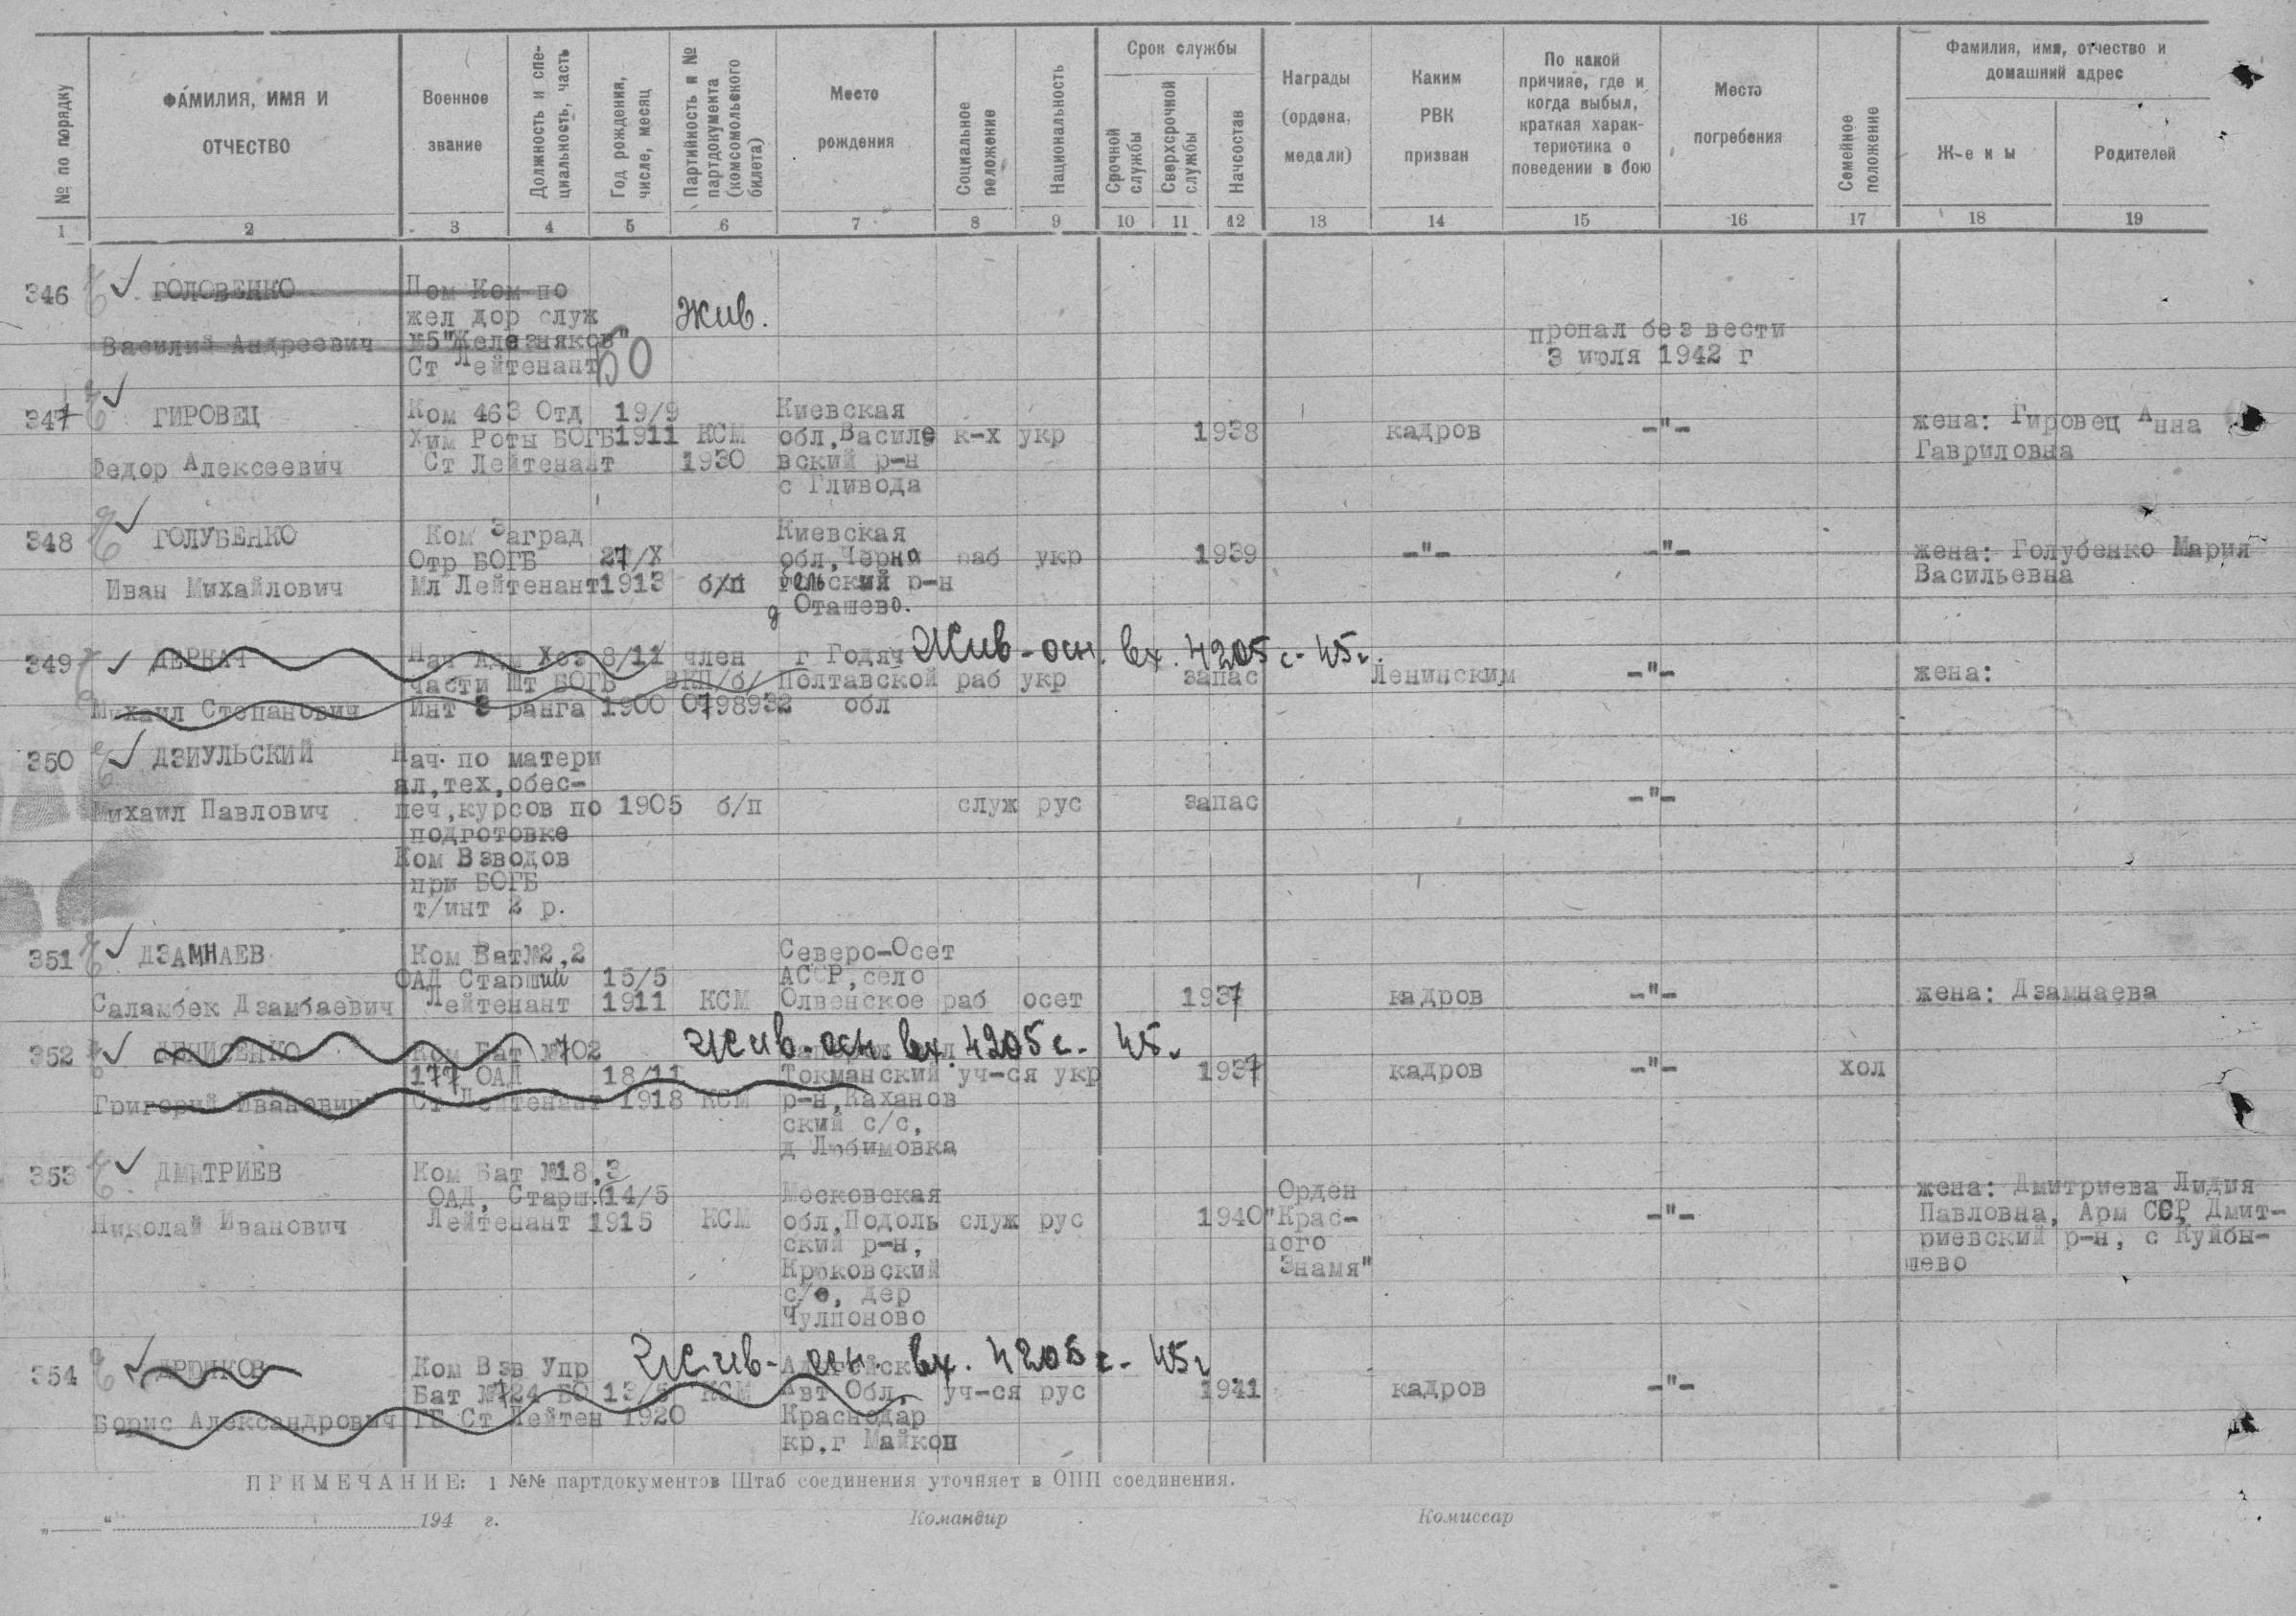 № по порядку
ФАМИЛИЯ, ИМЯ И
ОТЧЕСТВО
Военное
звание
Должность и спе-
циальность, часть
Год рождения,
число, месяц
Партийность и №
партдокумента
(комсомольского
билета)
Место
рождения
Социальное
положение
Национальность
Срок службы
Срочной
службы
Сверхсрочной
службы
Начсостав
Награды
(ордена,
медали)
Каким
РВК
призван
По какой
причине, где и
когда выбыл,
краткая харак-
теристика о
поведении в бою
Место
погребения
Семейное
положение
Фамилия, имя, отчество и
домашний адрес
Ж-е н ы
Родителей
1 2 3 4 5 6 7 8 9 10 11 12 13 14 15 16 17 18 19
346 ГОЛОВЕНКО
Василий Андреевич
Пом Ком по
жел дор служ
№5"Железняков"
Ст Лейтенант
БО
Жив.
пропал без вести
3 июля 1942 г
347 ГИРОВЕЦ
Федор Алексеевич
Ком 463 Отд
Хим Роты БОГБ
Ст Лейтенант
19/9
1911
КСМ
1930
Киевская
обл,Василе
вский р-н
с Гливода
к-х укр 1938 кадров -"-
жена: Гировец Анна
Гавриловна
348 ГОЛУБЕНКО
Иван Михайлович
Ком Заград
Отр БОГБ
Мл Лейтенант
27/Х
1913
б/п
Киевская
обл,Черно
бельский р-н
д Оташево.
раб укр 1939 -"- -"-
жена: Голубенко Мария
Васильевна
349 ДЕРКАЧ
Михаил Степанович
Нач Адм Хоз
части Шт БОГБ
Инт 3 ранга
8/11
1900
член
ВКП/б/
0798932
г Годяч
Полтавской
обл
Жив-осн. вх. 4205с-45г.
раб укр запас Ленинским -"- жена:
350 ДЗИУЛЬСКИЙ
Михаил Павлович
Нач. по матери
ал,тех,обес-
печ,курсов по
подготовке
Ком Взводов
при БОГБ
т/инт 2 р.
1905 б/п служ рус запас -"-
351 ДЗАМНАЕВ
Саламбек Дзамбаевич
Ком Бат№2,2
ОАД Старший
Лейтенант
15/5
1911
КСМ
Северо-Осет
АССР,село
Олвенское
раб осет 1937 кадров -"- жена: Дзамнаева
352 ДЕНИСЕНКО
Григорий Иванович
Ком Бат №702
177 ОАД
Ст Лейтенант
18/11
1918
КСМ
Жив-осн. вх. 4205с-45г
Токманский
р-н,Каханов
ский с/с,
д Любимовка
уч-ся укр 1937 кадров -"- хол
353 ДМИТРИЕВ
Николай Иванович
Ком Бат №18,3
ОАД, Старш.
Лейтенант
14/5
1915
КСМ
Московская
обл,Подоль
ский р-н,
Крюковский
с/с, дер
Чулпоново
служ рус 1940
Орден
"Крас-
ного
Знамя"
-"-
жена: Дмитриева Лидия
Павловна, Арм ССР, Дмит-
риевский р-н, с Куйбы-
шево
354
Борис Александрович
Ком Взв Упр
Бат №724 БО
ГБ Ст Лейтен
13/5
1920
КСМ
Жив-осн. вх. 4205с-45г
Авт Обл,
Краснодар
кр,г Майкоп
уч-ся рус 1941 кадров -"-
ПРИМЕЧАНИЕ: 1 №№ партдокументов Штаб соединения уточняет в ОПП соединения.
„ “ 194 г.
Командир
Комиссар